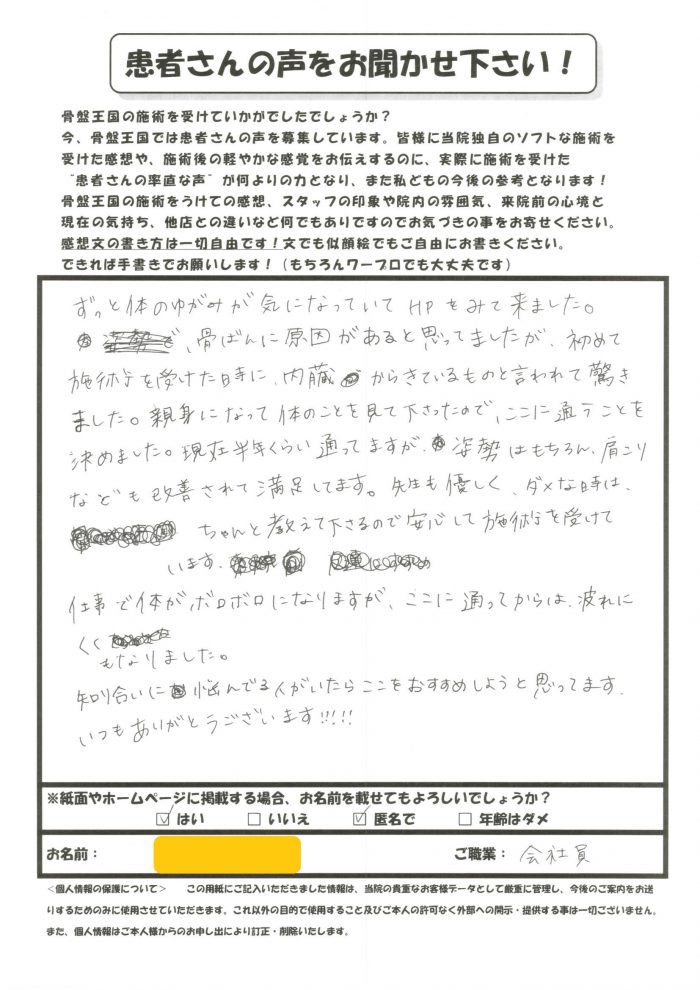 患者さんの声をお聞かせ下さい！
骨盤王国の施術を受けていかがでしたでしょうか？
今、骨盤王国では患者さんの声を募集しています。皆様に当院独自のソフトな施術を
受けた感想や、施術後の軽やかな感覚をお伝えするのに、実際に施術を受けた
“患者さんの率直な声”が何よりの力となり、また私どもの今後の参考となります！
骨盤王国の施術をうけての感想、スタッフの印象や院内の雰囲気、来院前の心境と
現在の気持ち、他店との違いなど何でもありですのでお気づきの事をお寄せください。
感想文の書き方は一切自由です！文でも似顔絵でもご自由にお書きください。
できれば手書きでお願いします！（もちろんワープロでも大丈夫です）
ずっと体のゆがみが気になっていてHPをみて来ました。
骨ばんに原因があると思ってましたが、初めて
施術を受けた時に、内臓からきているものと言われて驚き
ました。親身になって体のことを見て下さったので、ここに通うことを
決めました。現在半年くらい通ってますが、姿勢はもちろん、肩こり
なども改善されて満足してます。先生も優しく、ダメな時は、
ちゃんと教えて下さるので安心して施術を受けて
います。
仕事で体がボロボロになりますが、ここに通ってからは、疲れに
くく
もなりました。
知り合いに悩んでる人がいたらここをおすすめしようと思ってます。
いつもありがとうございます!!!!
※紙面やホームページに掲載する場合、お名前を載せてもよろしいでしょうか？
☑ はい □ いいえ ☑ 匿名で □ 年齢はダメ
お名前： ご職業： 会社員
＜個人情報の保護について＞ この用紙にご記入いただきました情報は、当院の貴重なお客様データとして厳重に管理し、今後のご案内をお送
りするためのみに使用させていただきます。これ以外の目的で使用すること及びご本人の許可なく外部への開示・提供する事は一切ございません。
また、個人情報はご本人様からのお申し出により訂正・削除いたします。